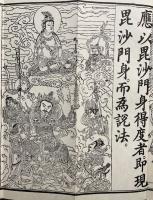 應以毘沙門身得度者即現
毘沙門身而為説法